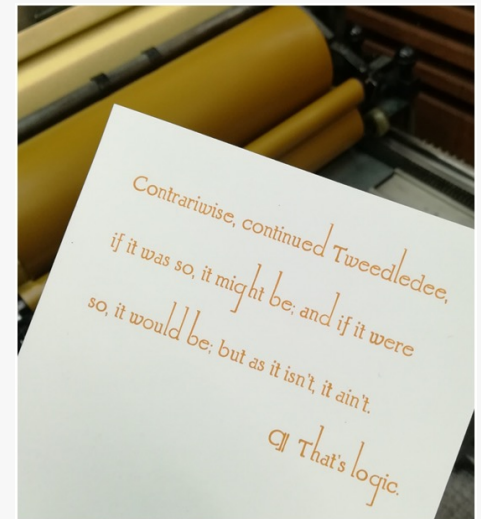 Contrariwise, continued Tweedledee,
if it was so, it might be; and if it were
so, it would be; but as it isn't, it ain't.
¶ That's logic.